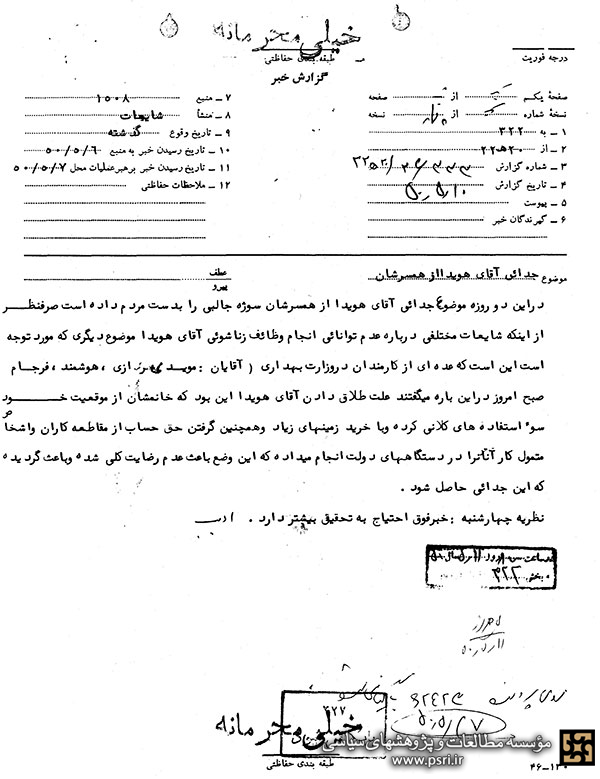 خیلی محرمانه
طبقه بندی حفاظتی
درجه فوریت
گزارش خبر
صفحه یکم از صفحه
نسخه شماره از نسخه
۱ – به ۳۲۲
۲ – از ۲۰ ه ۲۲
۳ – شماره گزارش
۴ – تاریخ گزارش
۵ – پیوست
۶ – گیرندگان خبر
۷ – منبع ۱۵۰۸
۸ – منشأ شایعات
۹ – تاریخ وقوع گذشته
۱۰ – تاریخ رسیدن خبر به منبع ۵۰/۵/۶
۱۱ – تاریخ رسیدن خبر برهبر عملیات محل ۵۰/۵/۷
۱۲ – ملاحظات حفاظتی
موضوع جدائی آقای هویدا از همسرشان
عطف
پیرو
دراین دو روزه موضوع جدائی آقای هویدا از همسرشان سوژه جالبی را بدست مردم داده است صرفنظر
از اینکه شایعات مختلفی درباره عدم توانائی انجام وظائف زناشوئی آقای هویدا موضوع دیگری که مورد توجه
است این است که عده ای از کارمندان دروزارت بهداری ( آقایان : موید ، هوشمند ، فرجام
صبح امروز دراین باره میگفتند علت طلاق دادن آقای هویدا این بود که خانمشان از موقعیت خـــود
سوء استفاده های کلانی کرده وبا خرید زمینهای زیاد وهمچنین گرفتن حق حساب از مقاطعه کاران واشخاص
متمول کار آنانرا در دستگاههای دولت انجام میداده که این وضع باعث عدم رضایت کلی شده وباعث گردیده
که این جدائی حاصل شود .
نظریه چهارشنبه : خبرفوق احتیاج به تحقیق بیشتر دارد .
بخش ۳۲۲
۵۰/۵/۱۷
خیلی محرمانه
طبقه بندی حفاظتی
۱۳۰–۴۶
مؤسسه مطالعات و پژوهشهای سیاسی
www.psri.ir